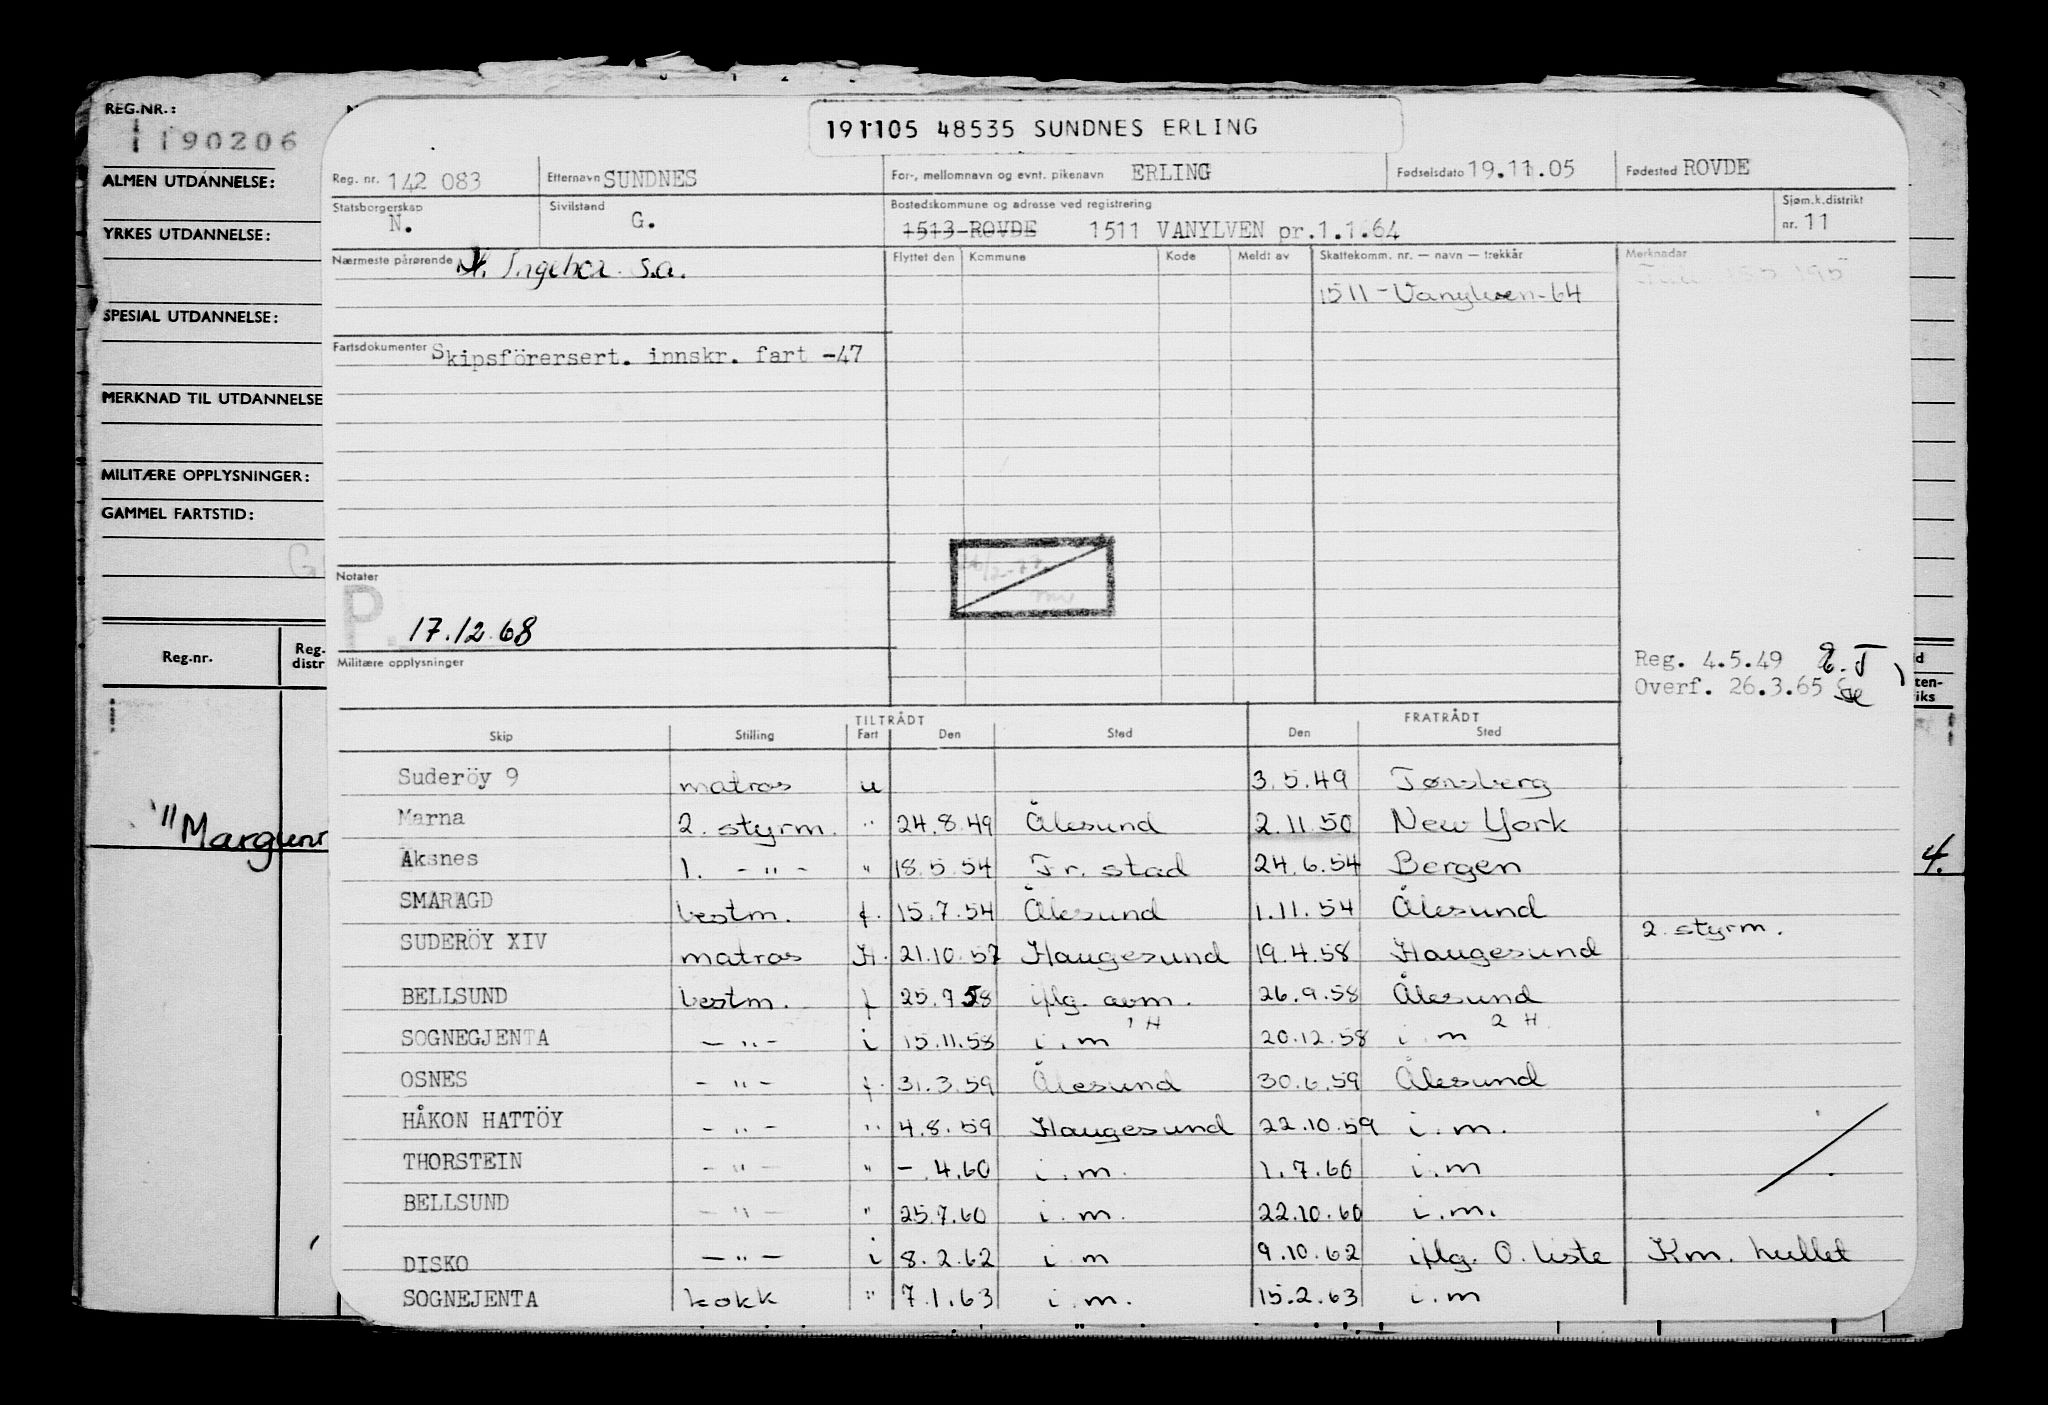 REG.NR.:
190206
ALMEN UTDANNELSE:
YRKES UTDANNELSE:
SPESIAL UTDANNELSE:
MERKNAD TIL UTDANNELSE
MILITÆRE OPPLYSNINGER:
GAMMEL FARTSTID:
Reg.nr.
Reg-
distr
191105 48535 SUNDNES ERLING
Reg. nr. 142 083 Etternavn SUNDNES For-, mellomnavn og evnt. pikenavn ERLING Fødselsdato 19.11.05 Fødested ROVDE
Statsborgerskap N. Sivilstand G. Bostedskommune og adresse ved registrering 1513 ROVDE 1511 VANYLVEN pr.1.1.64 Sjøm.k.distrikt nr. 11
Nærmeste pårørende Ingeber s.a. Flyttet den Kommune Kode Meldt av Skattekomm. nr. — navn — trekkår Merknader
1511 - Vanylven - 64
Fartsdokumenter Skipsförersert. innskr. fart -47
Notater
P. 17.12.68
Militære opplysninger
Reg. 4.5.49
Overf. 26.3.65
TILTRÅDT FRATRÅDT
Skip Stilling Fart Den Sted Den Sted
Suderöy 9 matros u 3.5.49 Tønsberg
Marna 2. styrm. " 24.8.49 Ålesund 2.11.50 New York
Aksnes 1. - " - " 18.5.54 Fr. stad 24.6.54 Bergen
SMARAGD bestm. f. 15.7.54 Ålesund 1.11.54 Ålesund
SUDERÖY XIV matros H. 21.10.57 Haugesund 19.4.58 Haugesund 2. styrm.
BELLSUND bestm. f 25.7.58 iflg. avm. 26.9.58 Ålesund
SOGNEGJENTA - " - i 15.11.58 i.m 1 H 20.12.58 i.m 2 H
OSNES - " - f. 31.3.59 Ålesund 30.6.59 Ålesund
HÅKON HATTÖY - " - " 4.8.59 Haugesund 22.10.59 i.m.
THORSTEIN - " - " -.4.60 i.m. 1.7.60 i.m
BELLSUND - " - " 25.7.60 i.m. 22.10.60 i.m.
DISKO - " - i 8.2.62 i.m 9.10.62 iflg. O. liste Km. hullet
SOGNEJENTA kokk " 7.1.63 i.m. 15.2.63 i.m
d
ten-
iks
4.